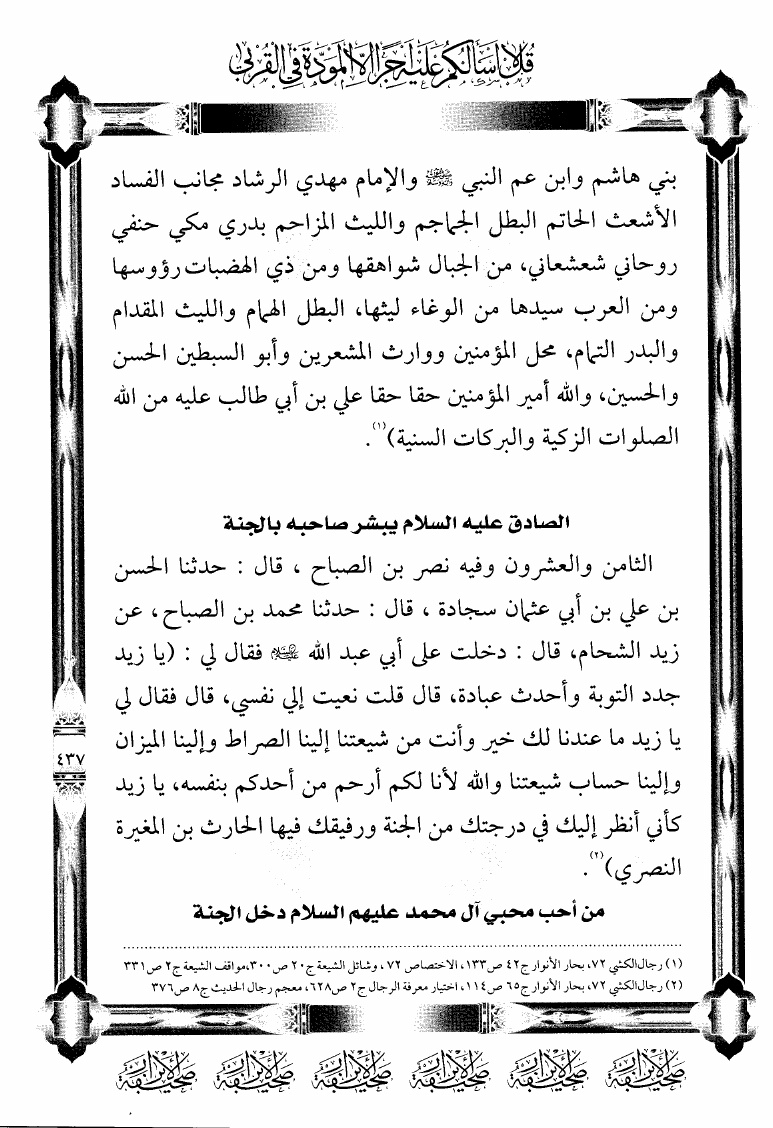 قل لا أسألكم عليه أجرا إلا المودة في القربى
بني هاشم وابن عم النبي ﷺ والإمام مهدي الرشاد مجانب الفساد
الأشعث الحاتم البطل الجماجم والليث المزاحم بدري مكي حنفي
روحاني شعشعاني، من الجبال شواهقها ومن ذي الهضبات رؤوسها
ومن العرب سيدها من الوغاء ليثها، البطل الهمام والليث المقدام
والبدر التمام، محل المؤمنين ووارث المشعرين وأبو السبطين الحسن
والحسين، والله أمير المؤمنين حقا حقا علي بن أبي طالب عليه من الله
الصلوات الزكية والبركات السنية)(١).
الصادق عليه السلام يبشر صاحبه بالجنة
الثامن والعشرون وفيه نصر بن الصباح ، قال : حدثنا الحسن
بن علي بن أبي عثمان سجادة ، قال : حدثنا محمد بن الصباح، عن
زيد الشحام، قال : دخلت على أبي عبد الله فقال لي : (يا زيد
جدد التوبة وأحدث عبادة، قال قلت نعيت إلي نفسي، قال فقال لي
يا زيد ما عندنا لك خير وأنت من شيعتنا إلينا الصراط وإلينا الميزان
وإلينا حساب شيعتنا والله لأنا لكم أرحم من أحدكم بنفسه، يا زيد
كأني أنظر إليك في درجتك من الجنة ورفيقك فيها الحارث بن المغيرة
النصري)(٢).
من أحب محبي آل محمد عليهم السلام دخل الجنة
(١) رجال الكشي ٧٢، بحار الأنوار ج٤٢ ص١٣٣، الاختصاص ٧٢، وشائل الشيعة ج٢٠ ص٣٠٠، مواقف الشيعة ج٢ ص٣٣١
(٢) رجال الكشي ٧٢، بحار الأنوار ج٦٥ ص١١٤، اختيار معرفة الرجال ج٢ ص٦٢٨، معجم رجال الحديث ج٨ ص٣٧٦
٤٣٧
صحيفة الأبرار صحيفة الأبرار صحيفة الأبرار صحيفة الأبرار صحيفة الأبرار صحيفة الأبرار